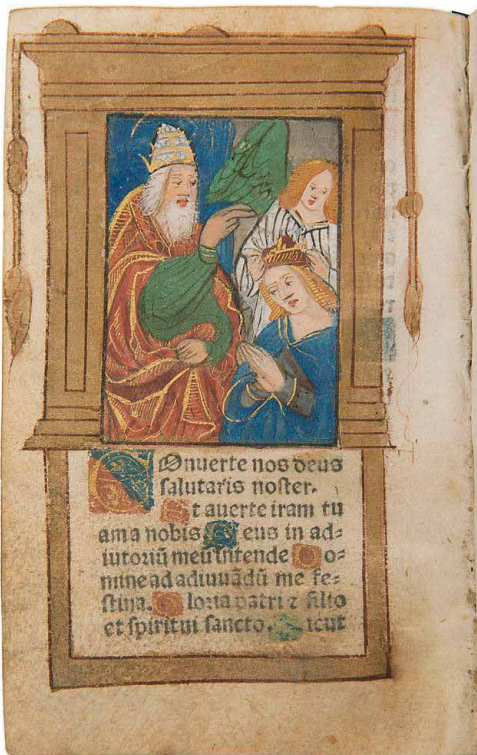 COnuerte nos deus
salutaris noster.
Et auerte iram tu
am a nobis. Deus in ad⸗
iutoriū meū intende Do⸗
mine ad adiuuādū me fe⸗
stina. Gloria patri ⁊ filio
et spiritui sancto. Sicut